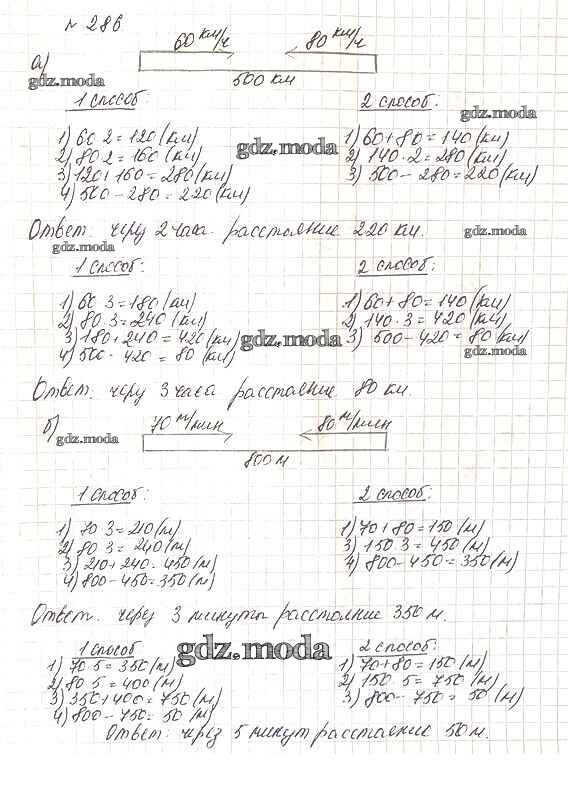 № 286
60 км/ч 80 км/ч
а)
gdz.moda
500 км
1 способ:
1) 60 2 = 120 (км)
2) 80 2 = 160 (км)
3) 120 + 160 = 280 (км)
4) 500 - 280 = 220 (км)
2 способ:
gdz.moda
1) 60 + 80 = 140 (км)
2) 140 · 2 = 280 (км)
3) 500 - 280 = 220 (км)
gdz.moda
Ответ. через 2 часа расстояние 220 км.
gdz.moda
gdz.moda
1 способ:
1) 60 3 = 180 (км)
2) 80 3 = 240 (км)
3) 180 + 240 = 420 (км)
4) 500 - 420 = 80 (км)
2 способ:
1) 60 + 80 = 140 (км)
2) 140 · 3 = 420 (км)
3) 500 - 420 = 80 (км)
gdz.moda
gdz.moda
Ответ. через 3 часа расстояние 80 км.
70 м/мин 80 м/мин
б)
gdz.moda
800 м
1 способ:
1) 70 3 = 210 (м)
2) 80 3 = 240 (м)
3) 210 + 240 = 450 (м)
4) 800 - 450 = 350 (м)
2 способ:
1) 70 + 80 = 150 (м)
3) 150 3 = 450 (м)
4) 800 - 450 = 350 (м)
Ответ. через 3 минуты расстояние 350 м.
1 способ
1) 70 5 = 350 (м)
2) 80 5 = 400 (м)
3) 350 + 400 = 750 (м)
4) 800 - 750 = 50 (м)
gdz.moda
2 способ:
1) 70 + 80 = 150 (м)
2) 150 5 = 750 (м)
3) 800 - 750 = 50 (м)
Ответ: через 5 минут расстояние 50 м.